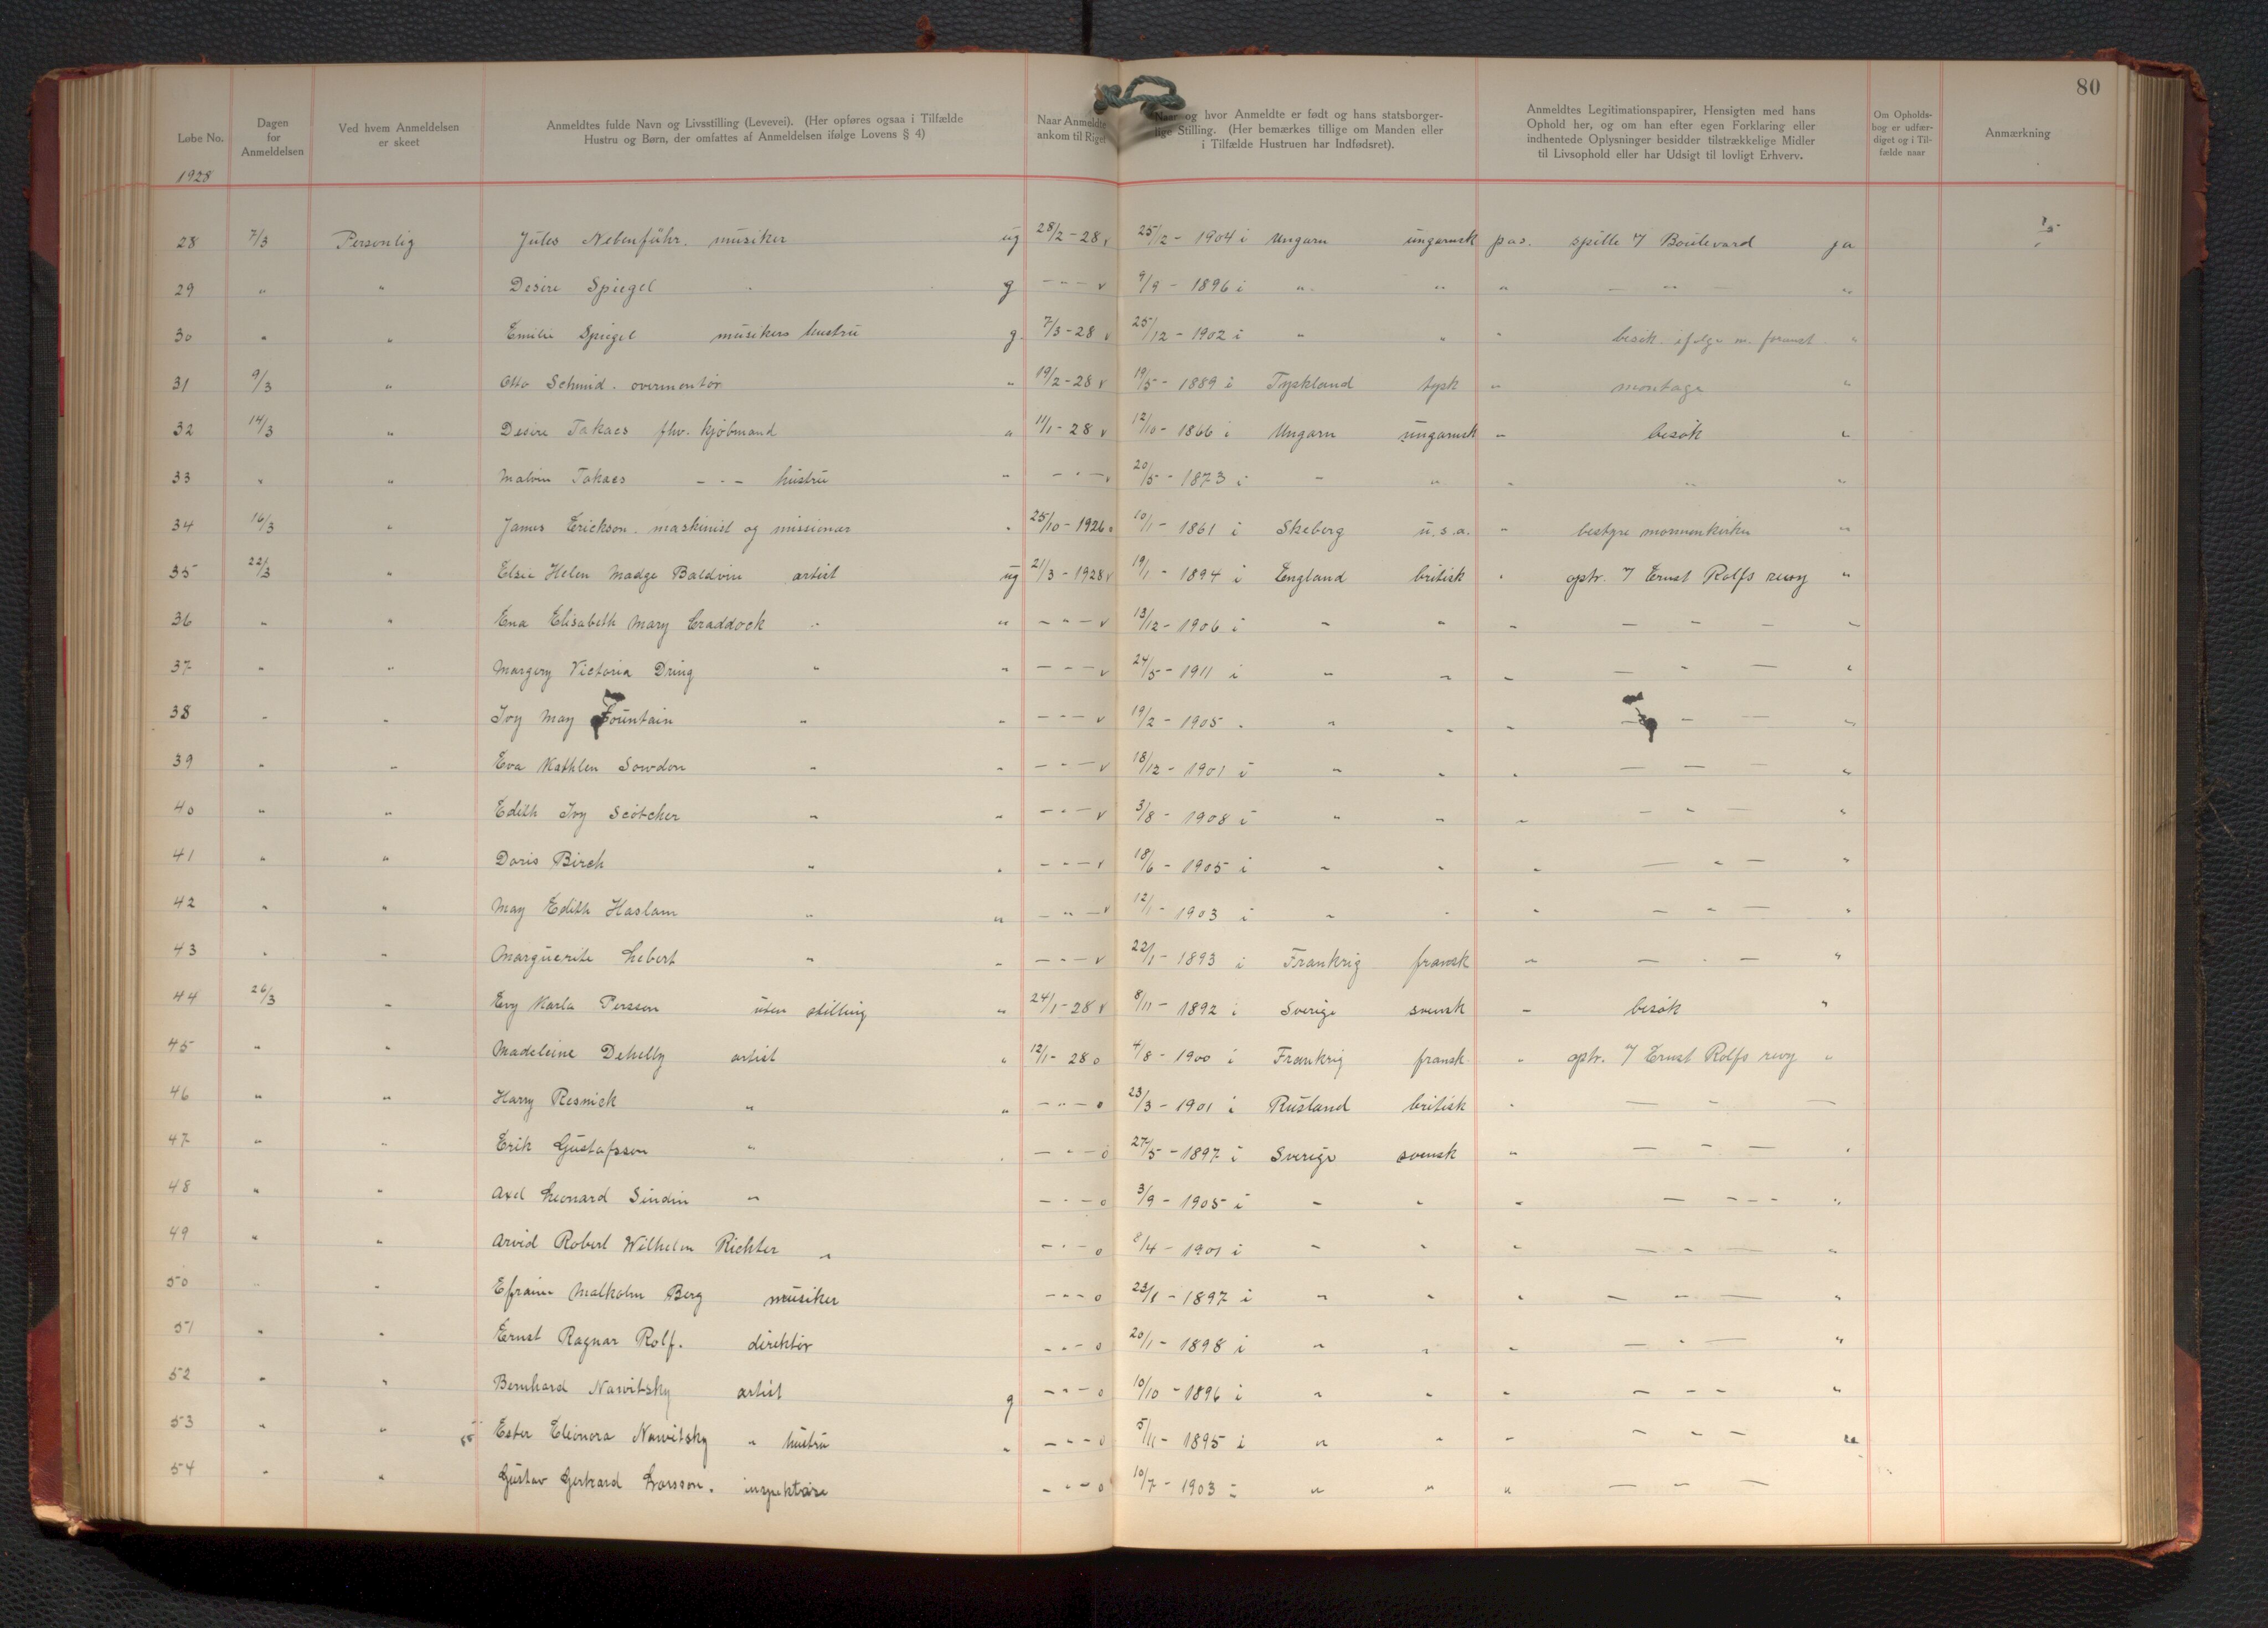 80
Løbe No.
Dagen for Anmeldelsen
Ved hvem Anmeldelsen er skeet
Anmeldtes fulde Navn og Livsstilling (Levevei). (Her opføres ogsaa i Tilfælde Hustru og Børn, der omfattes af Anmeldelsen ifølge Lovens § 4)
Naar Anmeldte ankom til Riget
Naar og hvor Anmeldte er født og hans statsborgerlige Stilling. (Her bemærkes tillige om Manden eller i Tilfælde Hustruen har Indfødsret).
Anmeldtes Legitimationspapirer, Hensigten med hans Ophold her, og om han efter egen Forklaring eller indhentede Oplysninger besidder tilstrækkelige Midler til Livsophold eller har Udsigt til lovligt Erhverv.
Om Opholdsbog er udfærdiget og i Tilfælde naar
Anmærkning
1928
28 7/3 Personlig Jules Nebenführ. musiker ug 28/2 - 28 v 25/2 - 1904 i Ungarn ungarnsk pas. spille Boulevard ja
29 " " Desire Spiegel g - " - v 9/9 - 1896 i " " " - " - "
30 " " Emilie Spiegel musikers hustru g. 7/3 - 28 v 25/12 - 1902 i " " " besøk ifølge m. foranst. "
31 9/3 " Otto Schmid. overmontør " 19/2 - 28 v 19/5 - 1889 i Tyskland tysk " montage "
32 14/3 " Desire Takacs fhv. kjøbmand " 11/1 - 28 v 12/10 - 1866 i Ungarn ungarnsk " besøk "
33 " " Malvin Takacs - " - hustru " - " - v 20/5 - 1873 i " " " " "
34 16/3 " James Erickson. maskinist og missionær " 25/10 - 1926 " 10/1 - 1861 i Skeberg u.s.a. " bestyre mormonkirken "
35 22/3 " Elsie Helen Madge Baldvin artist ug 21/3 - 1928 v 19/1 - 1894 i England britisk " optr. Ernst Rolfs revy "
36 " " Ena Elisabeth Mary Craddock " " - " - v 13/12 - 1906 i " " " - " - "
37 " " Margery Victoria Dring " " - " - v 24/5 - 1911 i " " " - " - "
38 " " Ivy May Fountain " " - " - v 19/2 - 1905 " " " " - " - "
39 " " Eva Kathlen Sowdon " " - " - v 18/12 - 1901 i " " " - - - "
40 " " Edith Ivy Scotcher " " - " - v 3/8 - 1908 i " " " - " - "
41 " " Doris Birch " " - " - v 18/6 - 1905 i " " " - " - "
42 " " May Edith Haslam " " - " - v 12/1 - 1903 i " " " - " - "
43 " " Marguerite Lebert " " - " - v 22/1 - 1893 i Frankrig fransk " - " - "
44 26/3 " Evy Karla Persson uten stilling " 24/1 - 28 v 8/11 - 1892 i Sverige svensk " besøk "
45 " " Madeleine Dehelly artist " 12/1 - 28 o 4/8 - 1900 i Frankrig fransk " optr. Ernst Rolfs revy "
46 " " Harry Resnick " " - " - o 23/3 - 1901 i Rusland britisk " - " -
47 " " Erik Gustafsson " " - " - o 27/5 - 1897 i Sverige svensk " - " - "
48 " " Axel Leonard Sindin " - " - o 3/9 - 1905 i " " " - " - "
49 " " Arvid Robert Wilhelm Richter " - " - o 8/4 - 1901 i " " " - " - "
50 " " Efraim Malkolm Berg musiker - " - o 23/1 - 1897 i " " " - " - "
51 " " Ernst Ragnar Rolf. direktør - " - o 20/1 - 1898 i " " " - " - "
52 " " Bernhard Nawitsky artist g - " - o 10/10 - 1896 i " " " - " - "
53 " " Ester Eleonora Nawitsky " hustru " - " - o 5/11 - 1895 i " " " - " - "
54 " " Gustav Gerhard Larsson. inspektør - " - o 10/7 - 1903 " " " " - " -